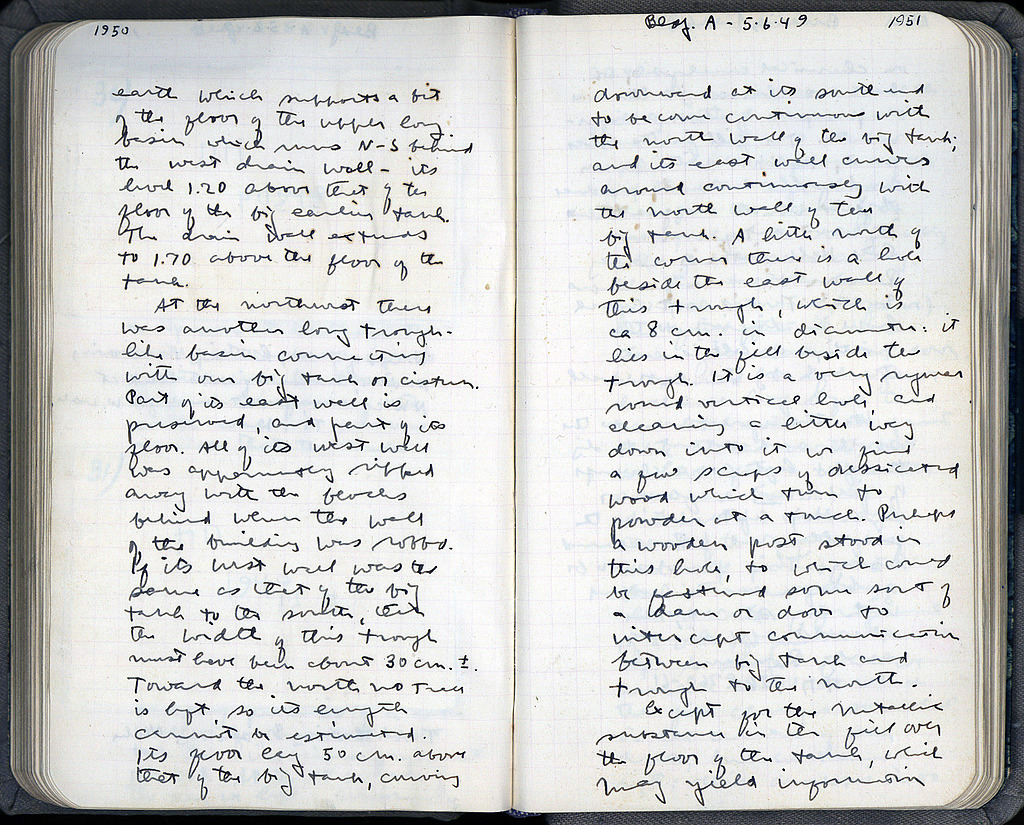 1950
earth which supports a bit
of the floor of the upper long
basin which runs N-S behind
the west drain wall - its
level 1.20 above that of the
floor of the big earlier tank.
The drain wall extends
to 1.70 above the floor of the
tank.
At the northwest there
was another long trough-
like basin connecting
with our big tank or cistern.
Part of its east wall is
preserved, and part of its
floor. All of its west wall
was apparently ripped
away with the blocks
behind when the wall
of the building was robbed.
If its west wall was the
same as that of the big
tank to the south, then
the width of this trough
must have been about 30 cm. ±.
Toward the north no trace
is left, so its length
cannot be estimated.
Its floor lay 50 cm. above
that of the big tank, curving
Beg. A - 5.6.49 1951
downward at its south end
to become continuous with
the north wall of the big tank;
and its east wall curves
around continuously with
the north wall of the
big tank. A little north of
the corner there is a hole
beside the east wall of
this trough, which is
ca 8 cm in diameter: it
lies in the fill beside the
trough. It is a very regular
round vertical hole, and
cleaning a little way
down into it we find
a few scraps of dessicated
wood which turn to
powder at a touch. Perhaps
a wooden post stood in
this hole, to which could
be fastened some sort of
a dam or door to
intercept communication
between big tank and
trough to the north.
Except for the metallic
substance in the fill over
the floor of the tank, which
may yield information